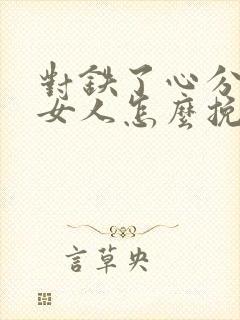 對鉄了心分
女人怎麼挽
言草央